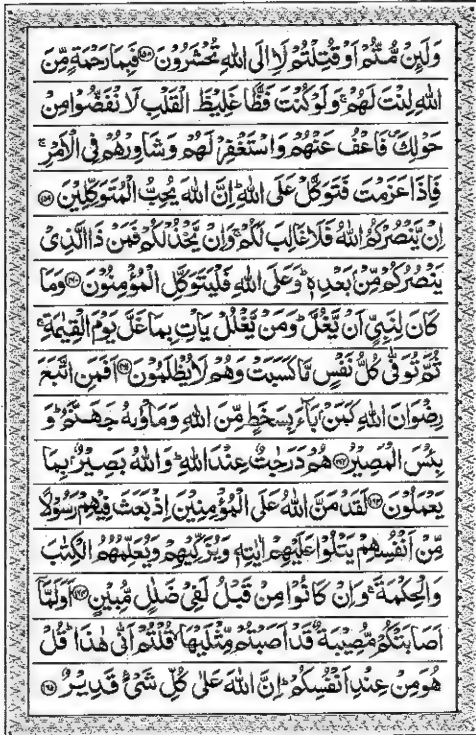 وَلَئِنْ مُّتُّمْ اَوْ قُتِلْتُمْ لَا۟اِلَى اللّٰهِ تُحْشَرُوْنَ ﴿۱۵۸﴾ فَبِمَا رَحْمَةٍ مِّنَ
اللّٰهِ لِنْتَ لَهُمْ ۚ وَلَوْ كُنْتَ فَظًّا غَلِيْظَ الْقَلْبِ لَا نْفَضُّوْا مِنْ
حَوْلِكَ ۪ فَاعْفُ عَنْهُمْ وَاسْتَغْفِرْ لَهُمْ وَشَاوِرْهُمْ فِى الْاَمْرِ ۚ
فَاِذَا عَزَمْتَ فَتَوَكَّلْ عَلَى اللّٰهِ ؕ اِنَّ اللّٰهَ يُحِبُّ الْمُتَوَكِّلِيْنَ ﴿۱۵۹﴾
اِنْ يَّنْصُرْكُمُ اللّٰهُ فَلَا غَالِبَ لَكُمْ ۚ وَاِنْ يَّخْذُلْكُمْ فَمَنْ ذَا الَّذِىْ
يَنْصُرُكُمْ مِّنْۢ بَعْدِهٖ ؕ وَعَلَى اللّٰهِ فَلْيَتَوَكَّلِ الْمُؤْمِنُوْنَ ﴿۱۶۰﴾ وَمَا
كَانَ لِنَبِىٍّ اَنْ يَّغُلَّ ؕ وَمَنْ يَّغْلُلْ يَاْتِ بِمَا غَلَّ يَوْمَ الْقِيٰمَةِ ۚ
ثُمَّ تُوَفّٰى كُلُّ نَفْسٍ مَّا كَسَبَتْ وَهُمْ لَا يُظْلَمُوْنَ ﴿۱۶۱﴾ اَفَمَنِ اتَّبَعَ
رِضْوَانَ اللّٰهِ كَمَنْۢ بَآءَ بِسَخَطٍ مِّنَ اللّٰهِ وَمَاْوٰىهُ جَهَنَّمُ ؕ وَ
بِئْسَ الْمَصِيْرُ ﴿۱۶۲﴾ هُمْ دَرَجٰتٌ عِنْدَ اللّٰهِ ؕ وَاللّٰهُ بَصِيْرٌۢ بِمَا
يَعْمَلُوْنَ ﴿۱۶۳﴾ لَقَدْ مَنَّ اللّٰهُ عَلَى الْمُؤْمِنِيْنَ اِذْ بَعَثَ فِيْهِمْ رَسُوْلًا
مِّنْ اَنْفُسِهِمْ يَتْلُوْا عَلَيْهِمْ اٰيٰتِهٖ وَيُزَكِّيْهِمْ وَيُعَلِّمُهُمُ الْكِتٰبَ
وَالْحِكْمَةَ ۚ وَاِنْ كَانُوْا مِنْ قَبْلُ لَفِىْ ضَلٰلٍ مُّبِيْنٍ ﴿۱۶۴﴾ اَوَلَمَّاۤ
اَصَابَتْكُمْ مُّصِيْبَةٌ قَدْ اَصَبْتُمْ مِّثْلَيْهَا ۙ قُلْتُمْ اَنّٰى هٰذَا ؕ قُلْ
هُوَ مِنْ عِنْدِ اَنْفُسِكُمْ ؕ اِنَّ اللّٰهَ عَلٰى كُلِّ شَىْءٍ قَدِيْرٌ ﴿۱۶۵﴾